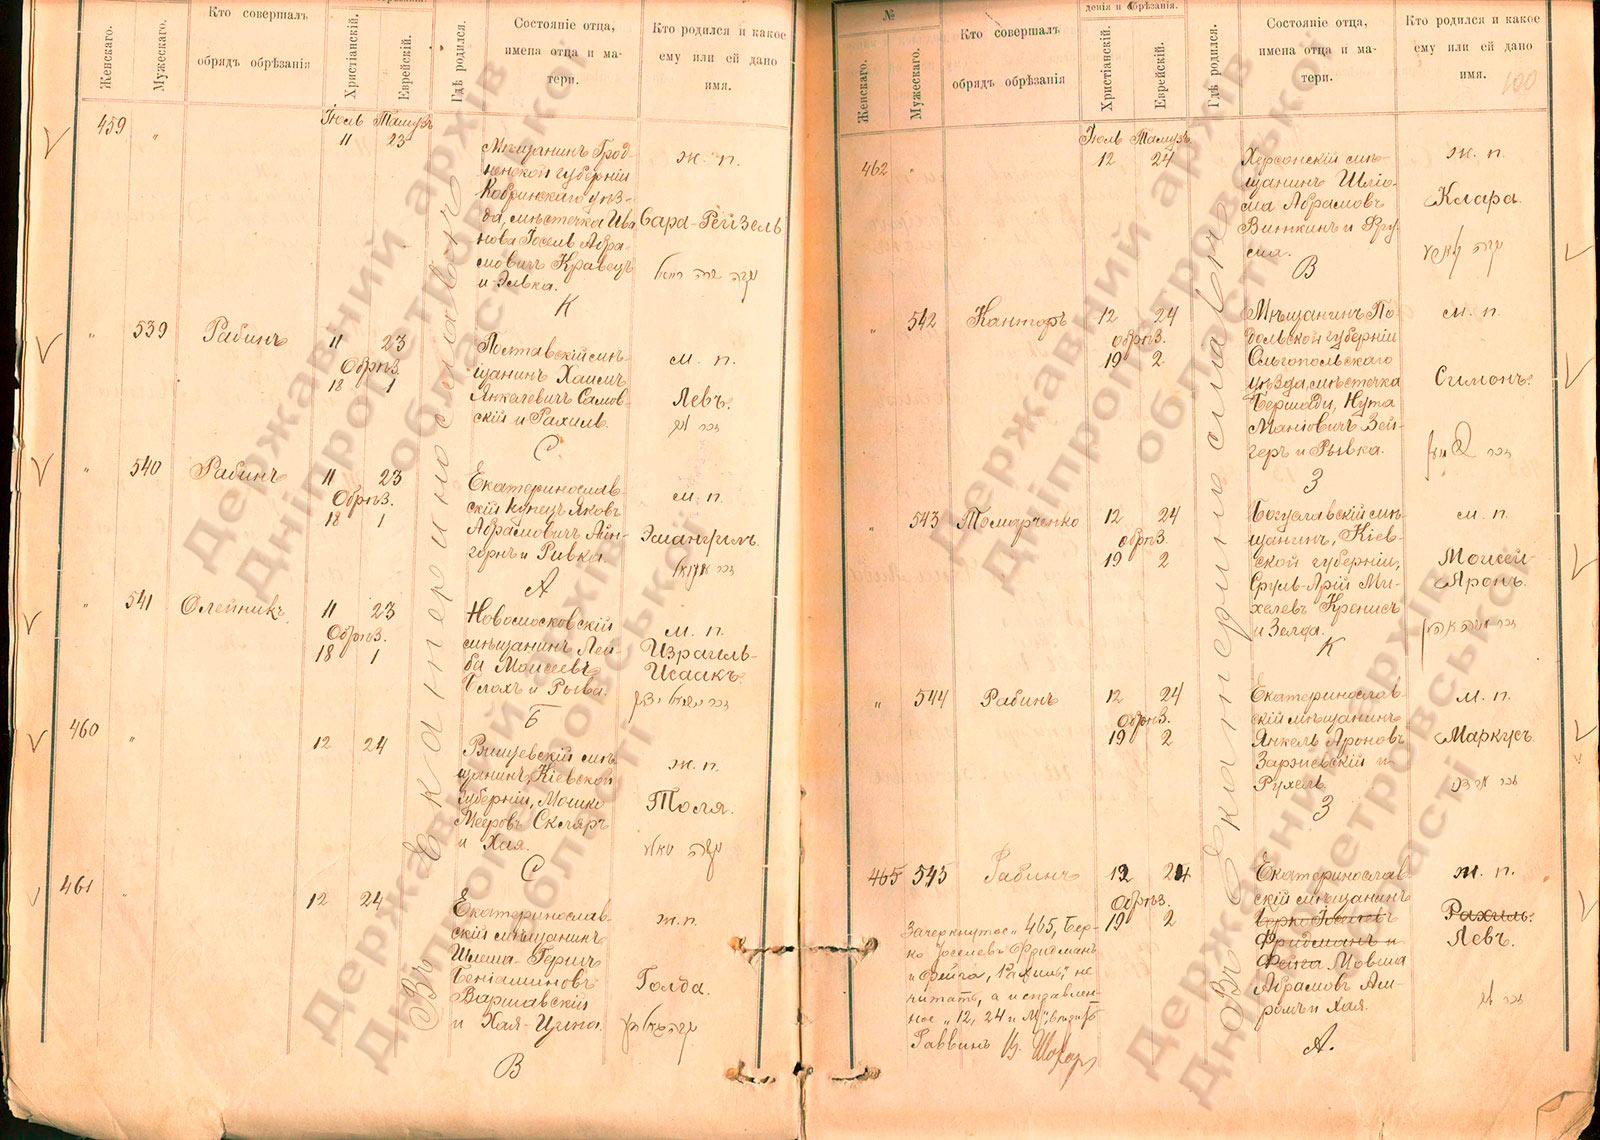 Женскаго.
Мужескаго.
Кто совершалъ
обрядъ обрѣзанія
Христіанскій.
Еврейскій.
Гдѣ родился.
Состояніе отца,
имена отца и ма-
тери.
Кто родился и какое
ему или ей дано
имя.
459 "
Іюль Тамузъ
11 23
Мѣщанинъ Грод-
ненской губерніи
Кобринскаго уѣз-
да, мѣстечка Ива
нова Іосель Абра-
мовичъ Кравецъ
и Элька.
К
ж. п.
Сара-Рейзель
" 539 Рабинъ
11 23
Обрѣз.
18 1
Полтавскій мѣ-
щанинъ Хаимъ
Янкелевичъ Самов-
скій и Рахиль.
С.
м. п.
Левъ.
" 540 Рабинъ
11 23
Обрѣз.
18 1
Екатеринослав
скій купецъ Яковъ
Абрамовичъ Айн-
горнъ и Ривка.
А
м. п.
" 541 Олейникъ
11 23
Обрѣз.
18 1
Новомосковскій
мѣщанинъ Лей-
ба Моисеевъ
Блохъ и Рыва.
Б
м. п.
Израиль-
Исаакъ.
460 "
12 24
мѣ-
щанинъ, Кіевской
губерніи, Мошко
Мееровъ Скляръ
и Хая.
С
ж. п.
Толя.
461 "
12 24
Екатеринослав-
скій мѣщанинъ
Шлема-Гершъ
Беніаминовъ
Варшавскій
и Хая-Ципа.
В
ж. п.
Голда.
Въ Екатеринославѣ
№
Женскаго.
Мужескаго.
Кто совершалъ
обрядъ обрѣзанія
денія и обрѣзанія.
Христіанскій.
Еврейскій.
Гдѣ родился.
Состояніе отца,
имена отца и ма-
тери.
Кто родился и какое
ему или ей дано
имя.
100
462 "
Іюль Тамузъ
12 24
Херсонскій мѣ-
щанинъ Шліо-
ма Абрамовъ
Винкинъ и Фру-
ма.
В
ж. п.
Клара.
" 542 Канторъ
12 24
обрѣз.
19 2
Мѣщанинъ По-
дольской губерніи
Ольгопольскаго
уѣзда, мѣстечка
Бершади, Нута
Маніовичъ Зей-
геръ и Рывка.
З
м. п.
Симонъ.
" 543 Томарченко
12 24
обрѣз.
19 2
Богуславскій мѣ-
щанинъ, Кіев-
ской губерніи,
Сруль-Арій Ми-
хелевъ Кренисъ
и Зелда.
К
м. п.
Моисей-
Аронъ.
" 544 Рабинъ
12 24
Обрѣз.
19 2
Екатеринослав-
скій мѣщанинъ
Янкель Ароновъ
Заржевскій и
Рухель.
З
м. п.
Маркусъ.
465 545 Рабинъ
12 24
Обрѣз.
19 2
Екатеринослав-
скій мѣщанинъ
Берко Іоселевъ
Фридманъ и
Фейга Мовша
Абрамовъ Ам-
ромъ и Хая.
А.
м. п.
Рахиль.
Левъ.
Зачеркнутое „465, Бер-
ко Іоселевъ Фридманъ
и Фейга, Рахиль" не
читать, а исправлен-
ное „12, 24 и м",
Раввинъ
Въ Екатеринославѣ
Державний архів
Дніпропетровської
області
Державний архів
Дніпропетровської
області
Державний архів
Дніпропетровської
області
Державний архів
Дніпропетровської
області